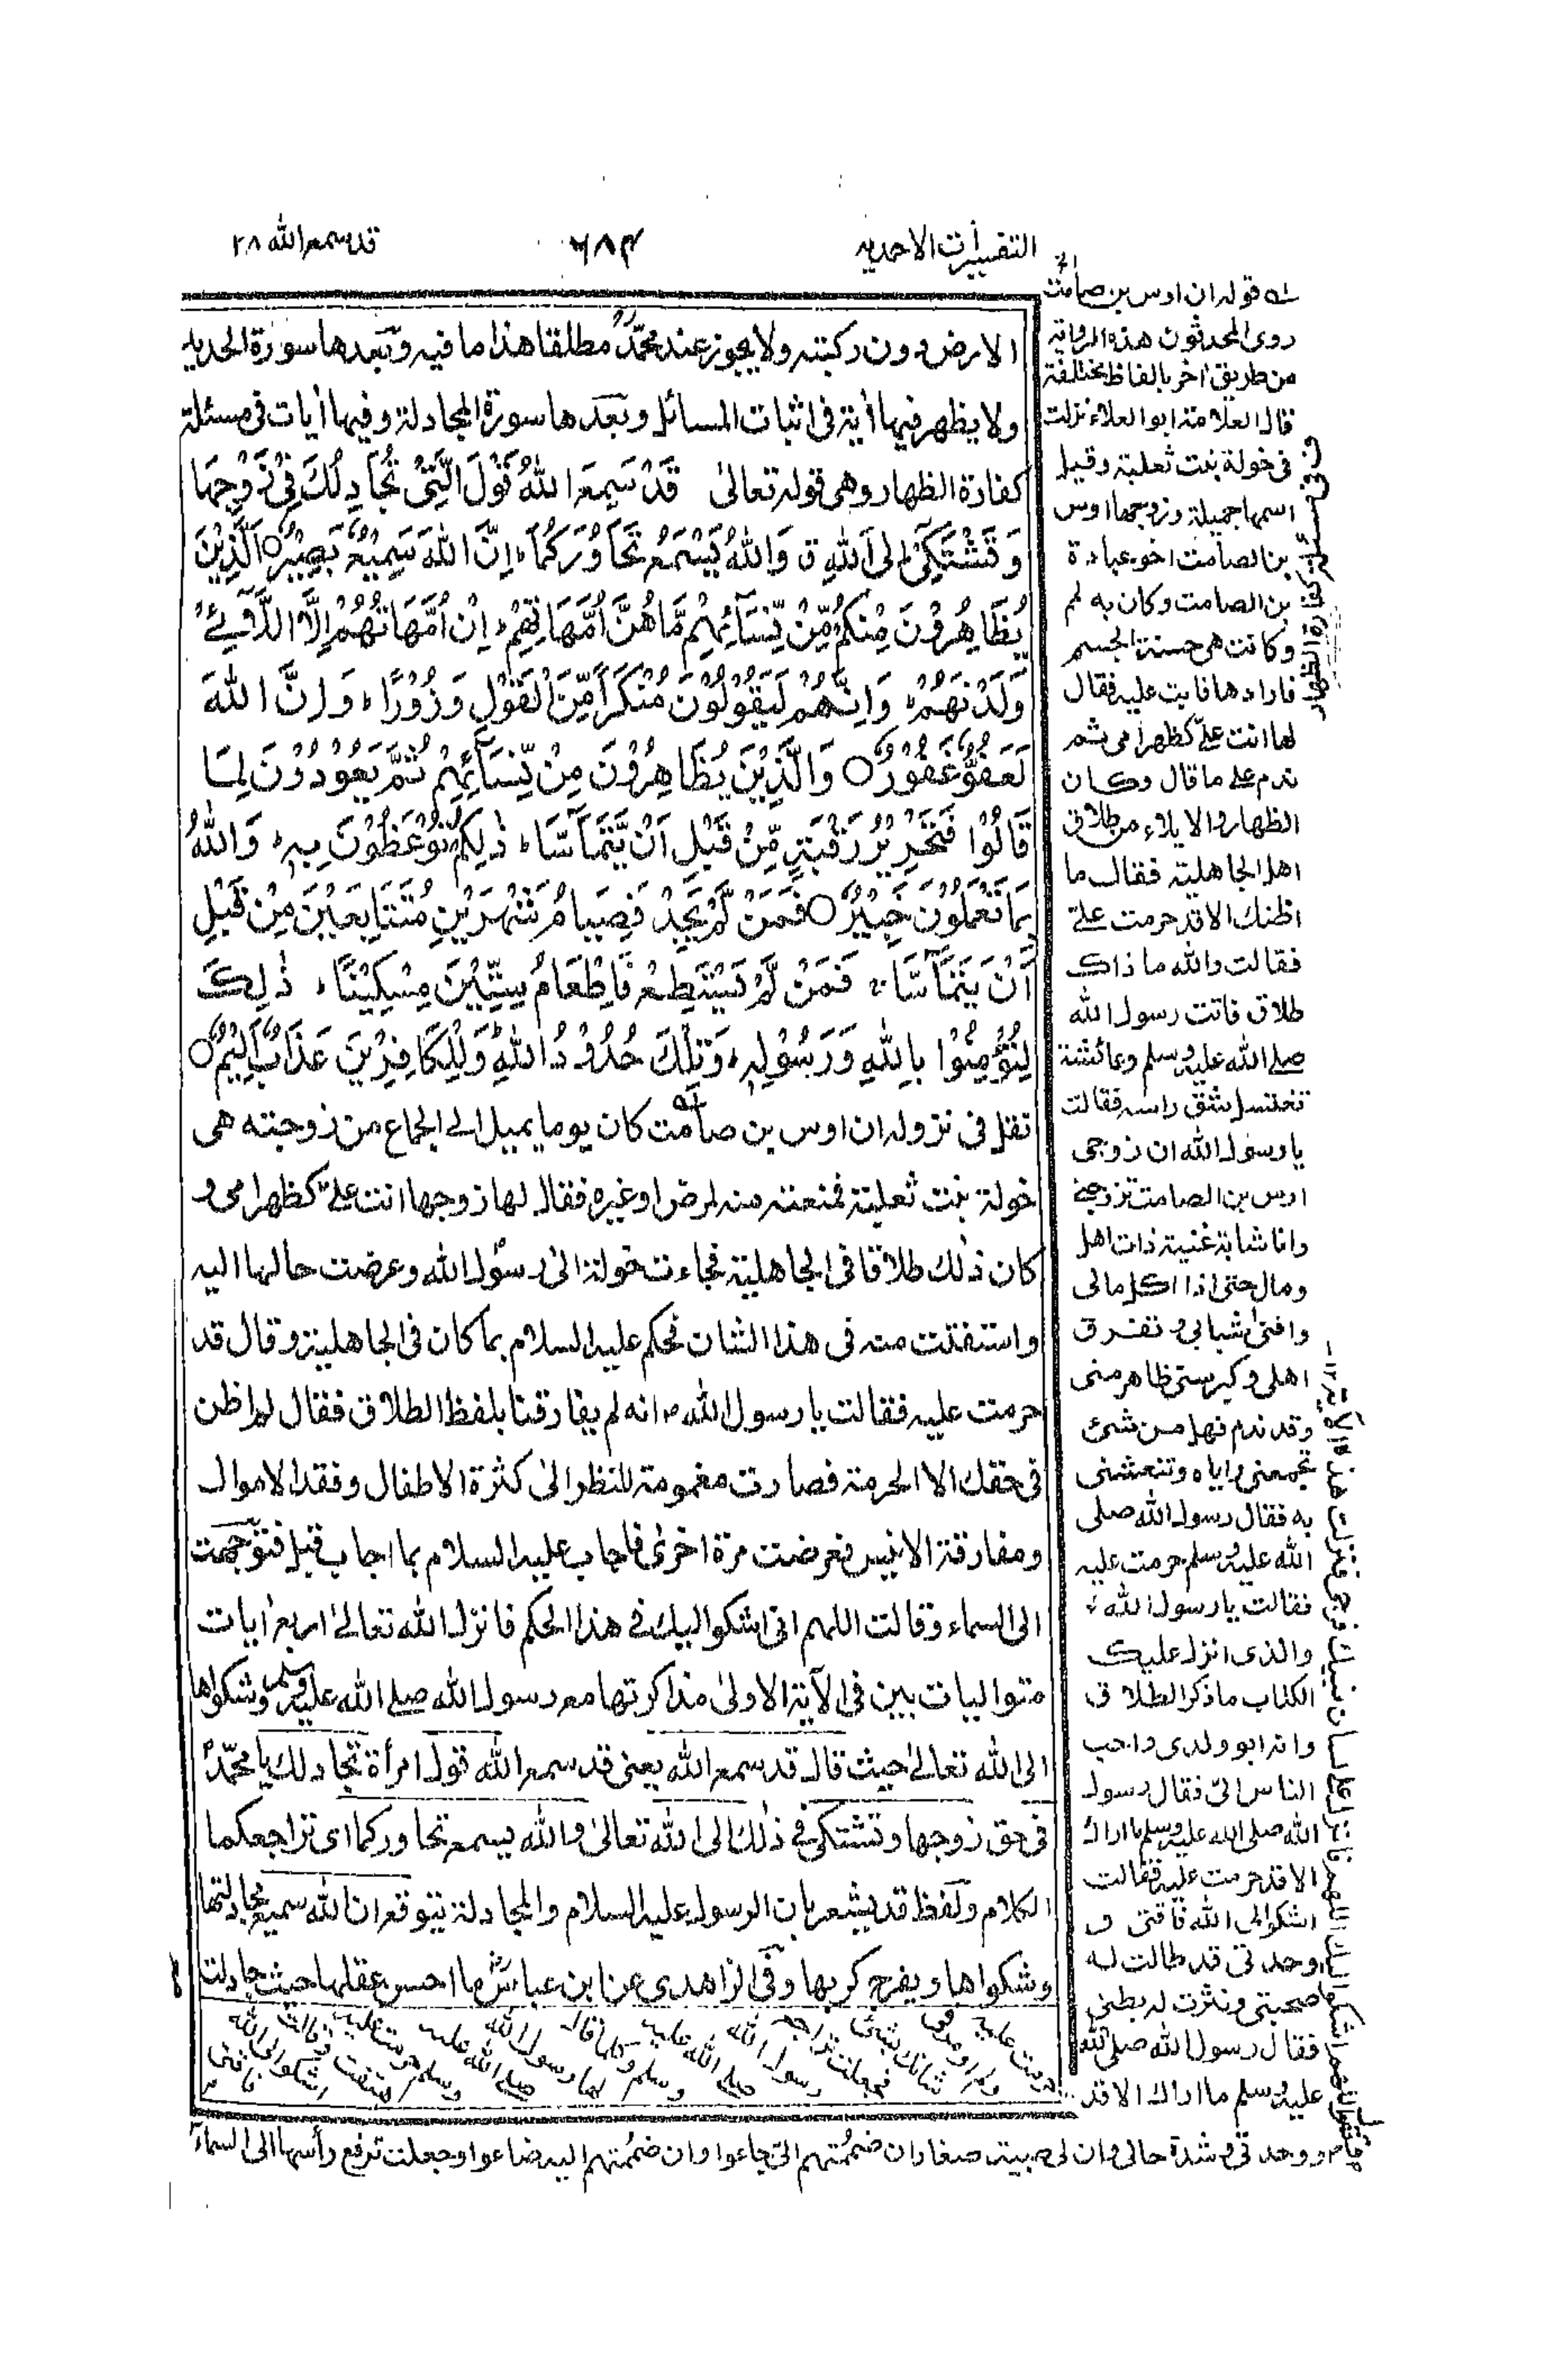 التفسيرات الاحمديه
٦٨٣
قد سمع الله ٢٨
الارض دون ركبته ولا يجوز عند محمدؒ مطلقا هذا ما فيه وبعدها سورة الحديد
ولا يظهر فيها أية فى اثبات المسائل وبعدها سورة المجادلة وفيها أيات فى مسئلة
كفارة الظهار وهى قوله تعالىٰ قَدْ سَمِعَ اللهُ قَوْلَ الَّتِىْ تُجَادِلُكَ فِىْ زَوْجِهَا
وَتَشْتَكِىْٓ اِلَى اللهِ ق وَاللهُ يَسْمَعُ تَحَاوُرَكُمَا ؕ اِنَّ اللهَ سَمِيْعٌۢ بَصِيْرٌ ○ اَلَّذِيْنَ
يُظَاهِرُوْنَ مِنْكُمْ مِّنْ نِّسَآئِهِمْ مَّا هُنَّ اُمَّهَاتِهِمْ ؕ اِنْ اُمَّهَاتُهُمْ اِلَّا الّٰٓـِٔىْ
وَلَدْنَهُمْ ؕ وَاِنَّهُمْ لَيَقُوْلُوْنَ مُنْكَرًا مِّنَ الْقَوْلِ وَزُوْرًا ؕ وَاِنَّ اللهَ
لَعَفُوٌّ غَفُوْرٌ ○ وَالَّذِيْنَ يُظَاهِرُوْنَ مِنْ نِّسَآئِهِمْ ثُمَّ يَعُوْدُوْنَ لِمَا
قَالُوْا فَتَحْرِيْرُ رَقَبَةٍ مِّنْ قَبْلِ اَنْ يَّتَمَآسَّا ؕ ذٰلِكُمْ تُوْعَظُوْنَ بِهٖ ؕ وَاللهُ
بِمَا تَعْمَلُوْنَ خَبِيْرٌ ○ فَمَنْ لَّمْ يَجِدْ فَصِيَامُ شَهْرَيْنِ مُتَتَابِعَيْنِ مِنْ قَبْلِ
اَنْ يَتَمَآسَّا ۚ فَمَنْ لَّمْ يَسْتَطِعْ فَاِطْعَامُ سِتِّيْنَ مِسْكِيْنًا ؕ ذٰلِكَ
لِتُؤْمِنُوْا بِاللهِ وَرَسُوْلِهٖ ؕ وَتِلْكَ حُدُوْدُ اللهِ ؕ وَلِلْكَافِرِيْنَ عَذَابٌ اَلِيْمٌ ○
نقل فى نزوله ان اوس بن صامت كان يوما يميل الى الجماع من زوجته هى
خولة بنت ثعلبة فمنعته منه لمرض او غيره فقال لها زوجها انت علىّ كظهر امى و
كان ذٰلك طلاقا فى الجاهلية فجاءت خولة الىٰ رسول الله وعرضت حالها اليه
واستفتت منه فى هذا الشان فحكم عليه السلام بما كان فى الجاهلية وقال قد
حرمت عليه فقالت يا رسول الله انه لم يفارقنا بلفظ الطلاق فقال لم اظن
فى حقك الا الحرمة فصارت مغمومة للنظر الىٰ كثرة الاطفال وفقد الاموال
ومفارقة الانيس فعرضت مرة اخرىٰ فاجاب عليه السلام بما اجاب قبل فتوجهت
الى السماء وقالت اللهم انى اشكو اليك فى هذا الحكم فانزل الله تعالىٰ اربع أيات
متواليات بين فى الآية الاولىٰ مذاكرتها مع رسول الله صلى الله عليه وسلم وشكواها
الى الله تعالىٰ حيث قال قد سمع الله يعنى قد سمع الله قول امرأة تجادلك يا محمدؐ
فى حق زوجها وتشتكى فى ذٰلك الى الله تعالىٰ والله يسمع تحاوركما اى تراجعكما
الكلام ولفظ قد يشعر بان الرسول عليه السلام والمجادلة يتوقع ان الله سميع مجادلتها
وشكواها ويفرج كربها وفى الزاهدى عن ابن عباسؓ ما احسن عقلها حيث جادلت
قوله ان اوس بن صامت الخ
روى المحدثون هذه الرواية
من طريق اخر بالفاظ مختلفة
قال العلامة ابو العلاء نزلت
فى خولة بنت ثعلبة وقيل
اسمها جميلة وزوجها اوس
بن الصامت اخو عبادة
بن الصامت وكان به لم
وكانت هى حسنة الجسم
فارادها فابت عليه فقال
لها انت علىّ كظهر امى ثم
ندم على ما قال وكان
الظهار والايلاء من طلاق
اهل الجاهلية فقال ما
اظنك الا قد حرمت علىّ
فقالت والله ما ذاك
طلاق فاتت رسول الله
صلى الله عليه وسلم وعائشة
تغتسل شق راسه فقالت
يا رسول الله ان زوجى
اوس بن الصامت تزوجنى
وانا شابة غنية ذات اهل
ومال حتى اذا اكل مالى
وافنى شبابى وتفرق
اهلى وكبر سنى ظاهر منى
وقد ندم فهل من شئ
تجمعنى واياه وتنعشنى
به فقال رسول الله صلى
الله عليه وسلم حرمت عليه
فقالت يا رسول الله
والذى انزل عليك
الكتاب ما ذكر الطلاق
وانه ابو ولدى واحب
الناس الىّ فقال رسول
الله صلى الله عليه وسلم ما اراك
الا قد حرمت عليه فقالت
اشكو الى الله فاقتى و
وحدتى قد طالت له
صحبتى ونثرت له بطنى
فقال رسول الله صلى الله
عليه وسلم ما اراك الا قد
حرمت عليه
فجعلت تراجع
رسول الله
صلى الله عليه
وسلم وكلما قال
لها رسول الله
صلى الله عليه
وسلم حرمت عليه
هتفت وقالت
اشكو الى الله
فاقتى
ووحدتى وشدة حالى وان لى صبية صغارا ان ضممتهم الىّ جاعوا وان ضممتهم اليه ضاعوا وجعلت ترفع رأسها الى السماء